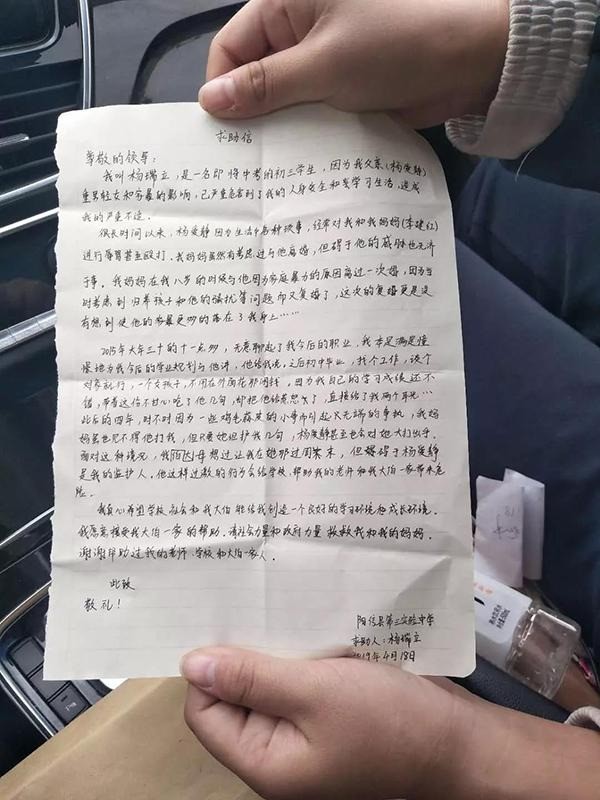 求助信
尊敬的领导:
我叫杨瑞立,是一名即将中考的初三学生,因为我父亲(杨爱静)
重男轻女和家暴的影响,已严重危害到了我的人身安全和我学习生活,造成
我的严重不适。
很长时间以来,杨爱静因为生活中各种琐事,经常对我和我妈妈(李建红)
进行辱骂甚至殴打。我妈妈虽然有考虑过与他离婚,但碍于他的威胁也无济
于事。我妈妈在我八岁的时候与他因为家庭暴力的原因离过一次婚,因为当
时考虑到归养孩子和他的骚扰等问题而又复婚了,这次的复婚更是没
有想到使他的家暴更多的落在了我身上……
2015年大年三十的十一点多,无意聊起了我今后的职业,我本是满是憧
憬地为我今后的学业规划与他讲,他给我说:之后初中毕业,找个工作,谈个
对象就行,一个女孩子,不用在外面花那闲钱,因为我自己的学习成绩还不
错,带着这份不甘心吃了他几句,却把他给惹怒了,直接给了我两个耳光……
此后的四年,时不时因为一些鸡毛蒜皮的小事而引起又无端的争执,我妈
妈虽也见不得他打我,但只要她袒护我几句,杨爱静甚至也会对她大打出手。
面对这种情况,我伯母想过让我在她那过周末,但碍于杨爱静
是我的监护人。他这样过激的行为会给学校、帮助我的老师和我大伯一家带来危
险。
我真心希望学校、社会和我大伯能给我创造一个良好的学习环境和成长环境。
我愿意接受我大伯一家的帮助。请社会力量和政府力量救救我和我的妈妈。
谢谢帮助过我的老师、学校和大伯一家人。
此致
敬礼!
阳信县第三实验中学
求助人:杨瑞立
2019年4月18日